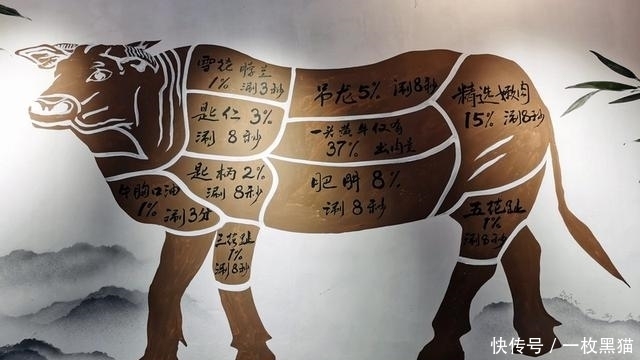 雪花脖兰
1% 涮3秒
匙仁 3%
涮 8秒
匙柄2%
涮8秒
牛胸口油
1% 涮3分
三花趾
1%
涮8秒
吊龙5% 涮8秒
一头黄牛仅有
37% 出肉率
肥胼 8%
涮 8秒
精选嫩肉
15% 涮8秒
五花趾
1%
涮8秒
快传号 / 一枚黑猫